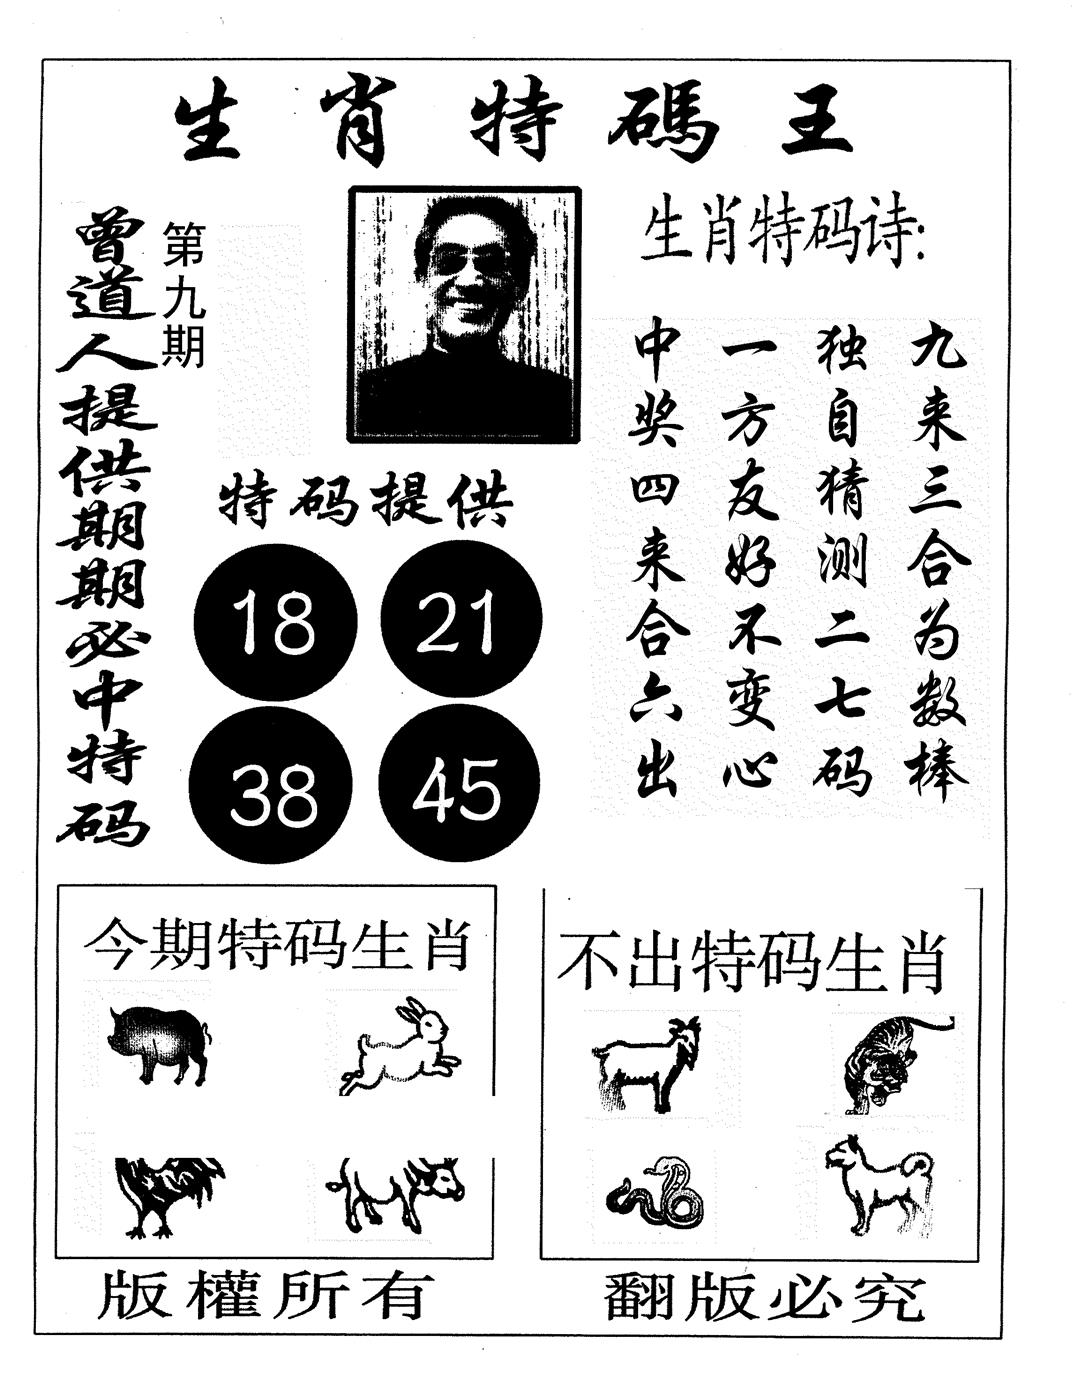 生肖特碼王
曾道人提供期期必中特码
第九期
生肖特码诗:
九来三合为数棒
独自猜测二七码
一方友好不变心
中奖四来合六出
特码提供
18 21
38 45
今期特码生肖
不出特码生肖
版權所有
翻版必究